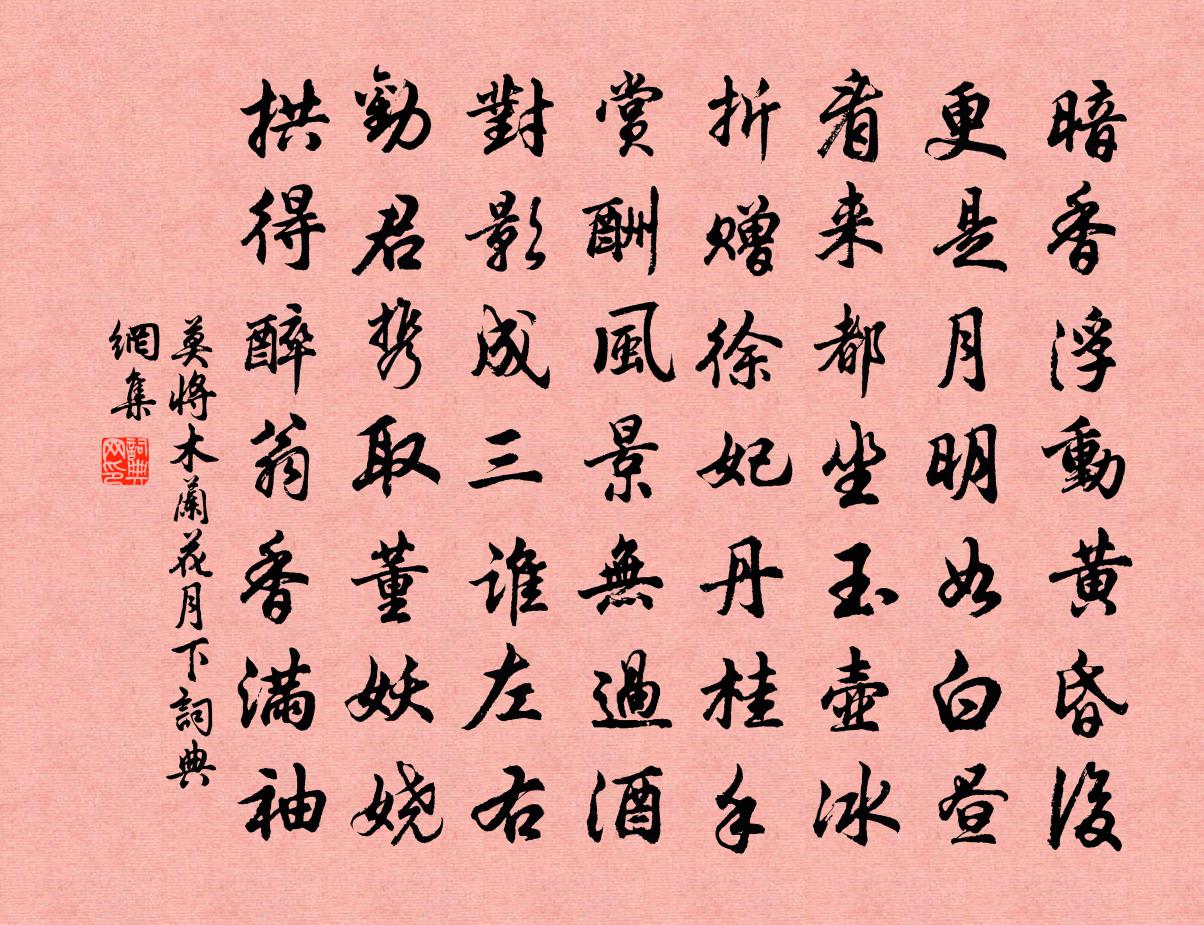 暗香浮動黄昏後
更是月明如白昼
看来都坐玉壺冰
折赠徐妃丹桂手
賞酬風景無過酒
對影成三谁左右
勸君携取董妖娆
拱得醉翁香满袖
莫將木蘭花月下詞典
網集
詞典
网印